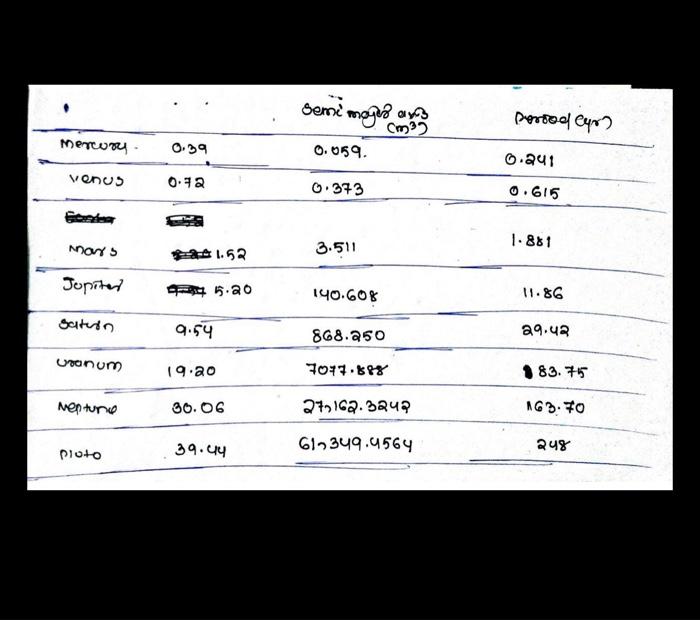 (m³)
Mercury. 0.39 0.059. 0.241
Venus 0.72 0.373 0.615
Mars 1.52 3.511 1.881
Jupiter 5.20 140.608 11.86
Saturn 9.54 868.250 29.42
Uranum 19.20 7077.888 83.75
Neptune 30.06 27,162.3242 163.70
Pluto 39.44 61,349.4564 248